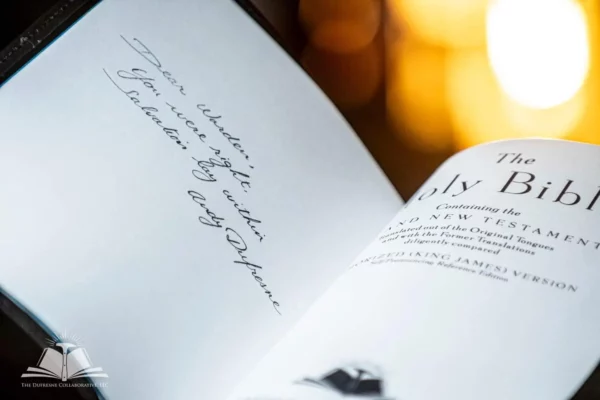 Dear Warden,
You were right.
Salvation lay within
Andy Dufresne
The
oly Bibl
Containing the
ND NEW TESTAMENT
anslated out of the Original Tongues
and with the Former Translations
diligently compared
RIZED (KING JAMES) VERSION
Self-Pronouncing Reference Edition
THE DUFRESNE COLLABORATIVE